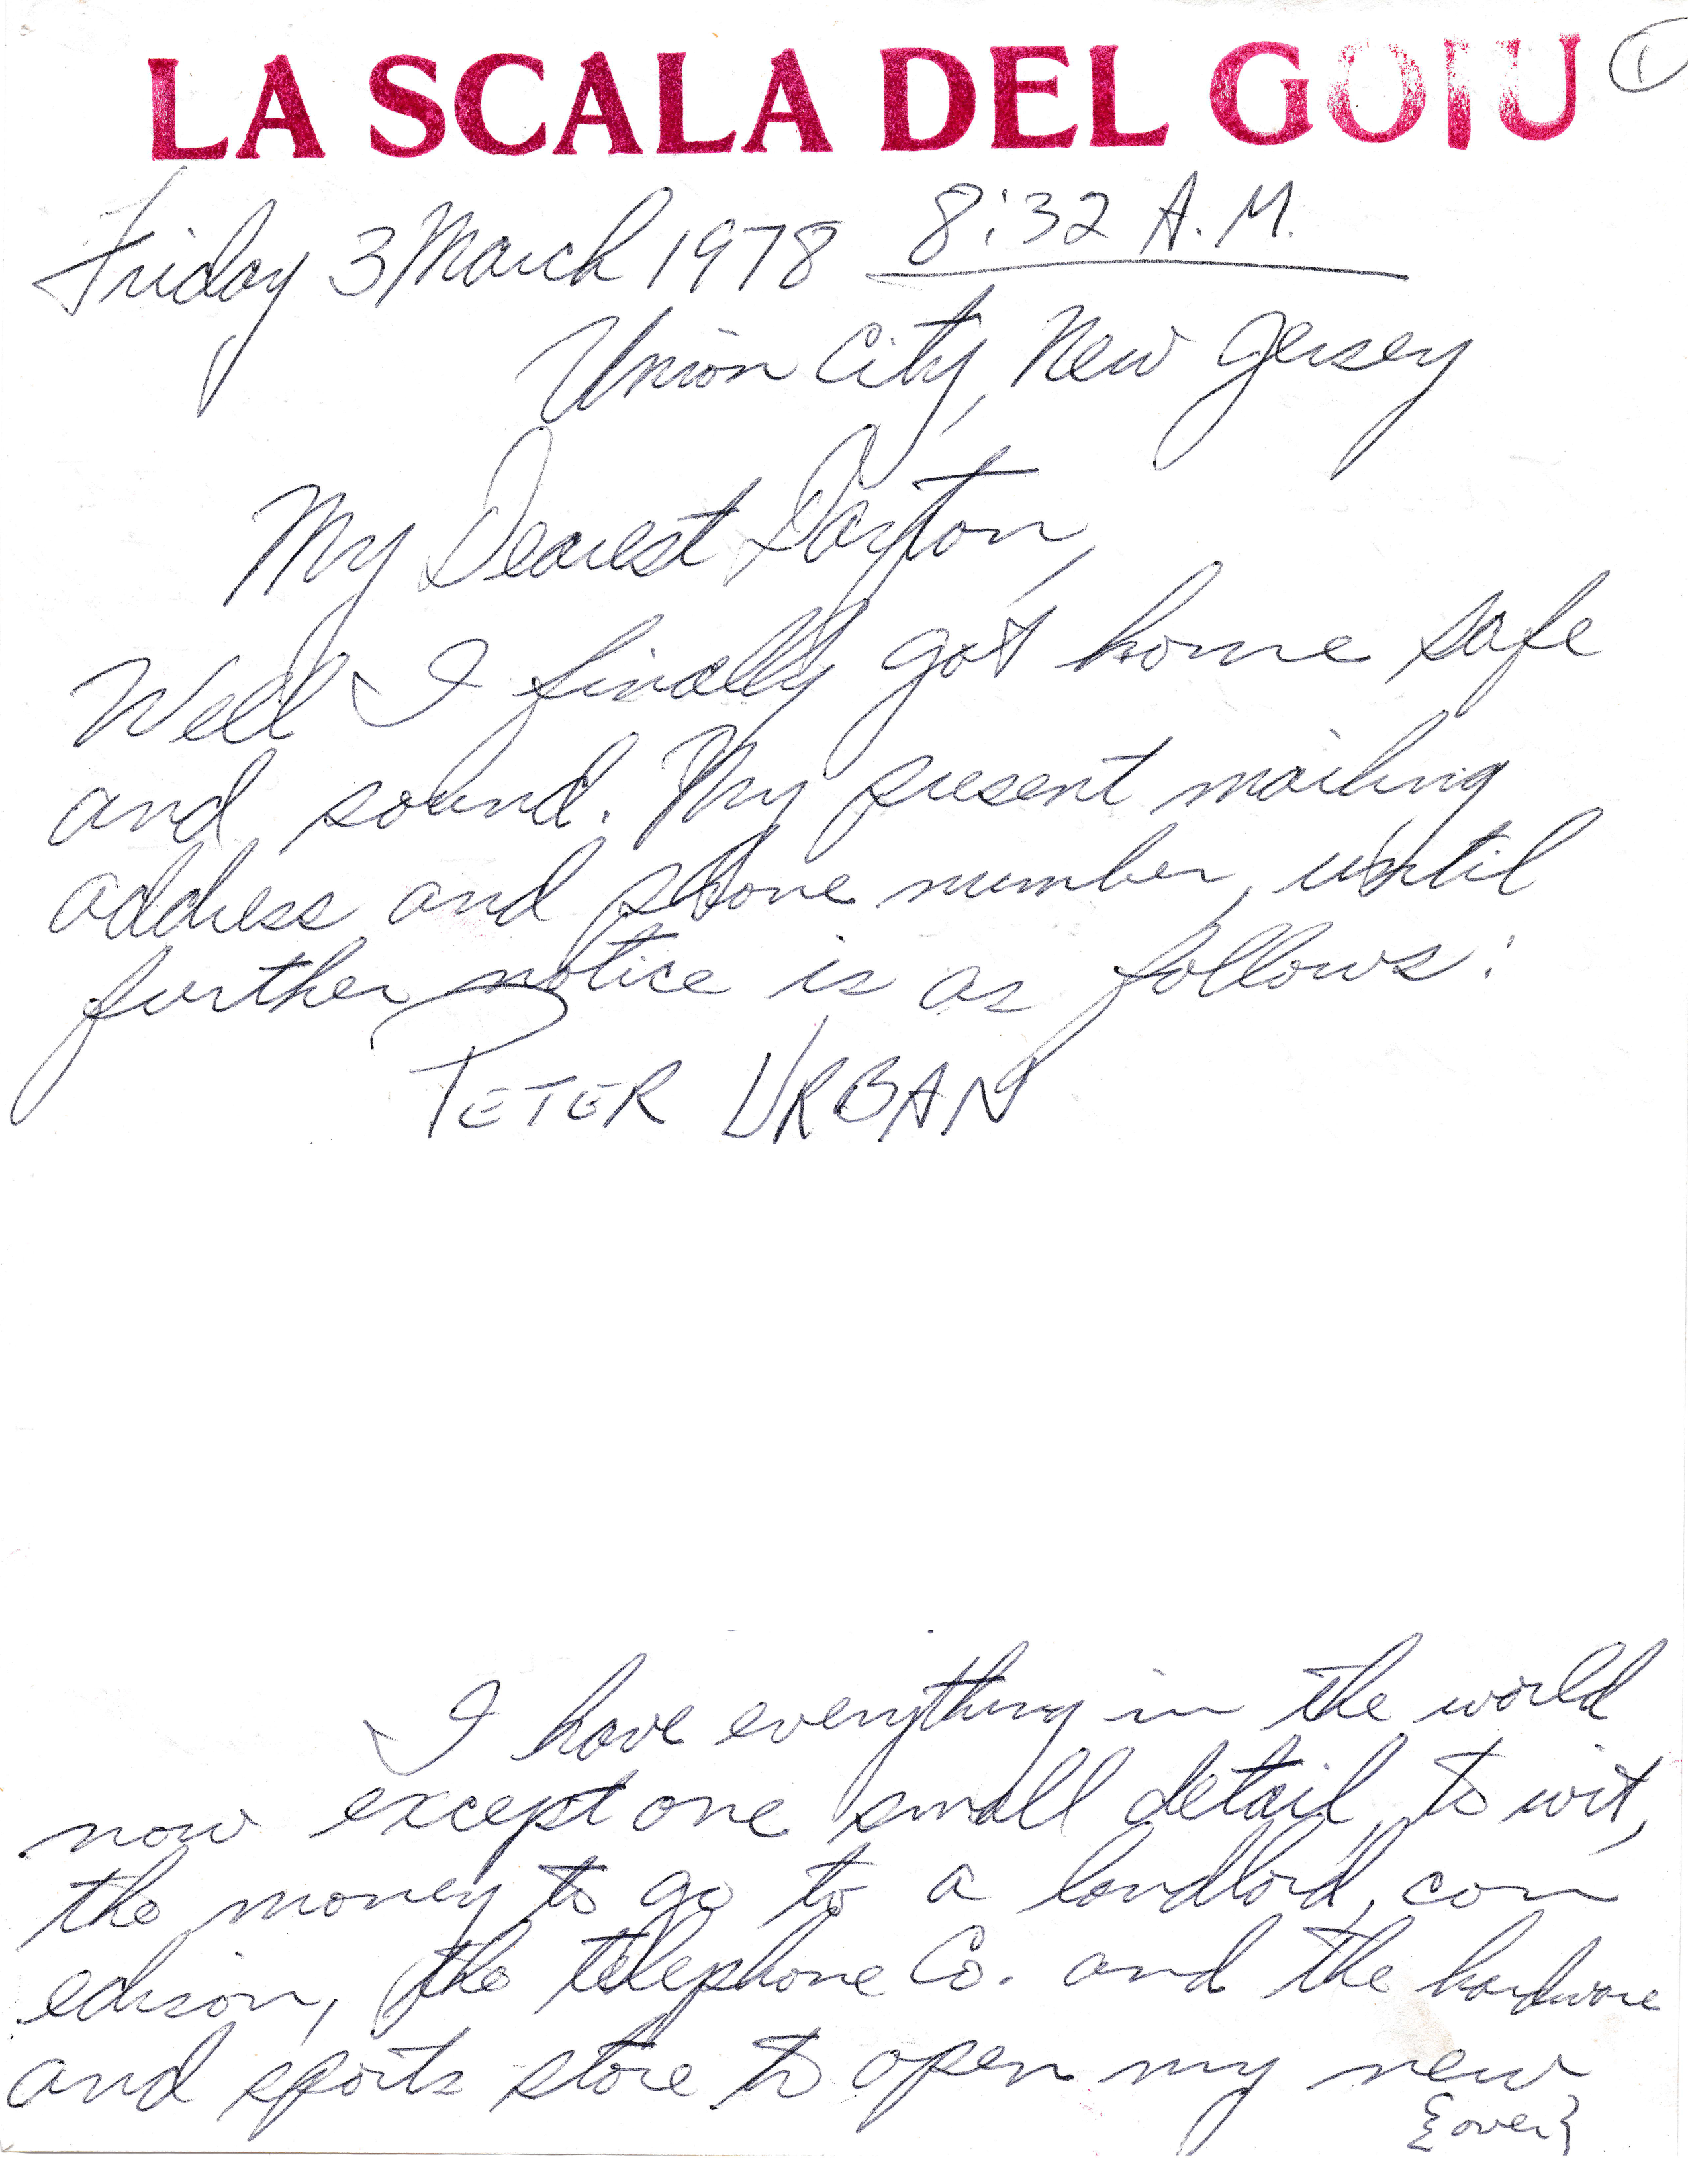 LA SCALA DEL GOJU
1
Friday 3 March 1978 8:32 A.M.
Union City, New Jersey
My Dearest Dayton,
Well I finally got home safe
and sound. My present mailing
address and phone number, until
further notice is as follows:
PETER URBAN
I have everything in the world
now except one small detail, to wit,
the money to go to a landlord, con
edison, the telephone Co. and the hardware
and sports store to open my new
{over}